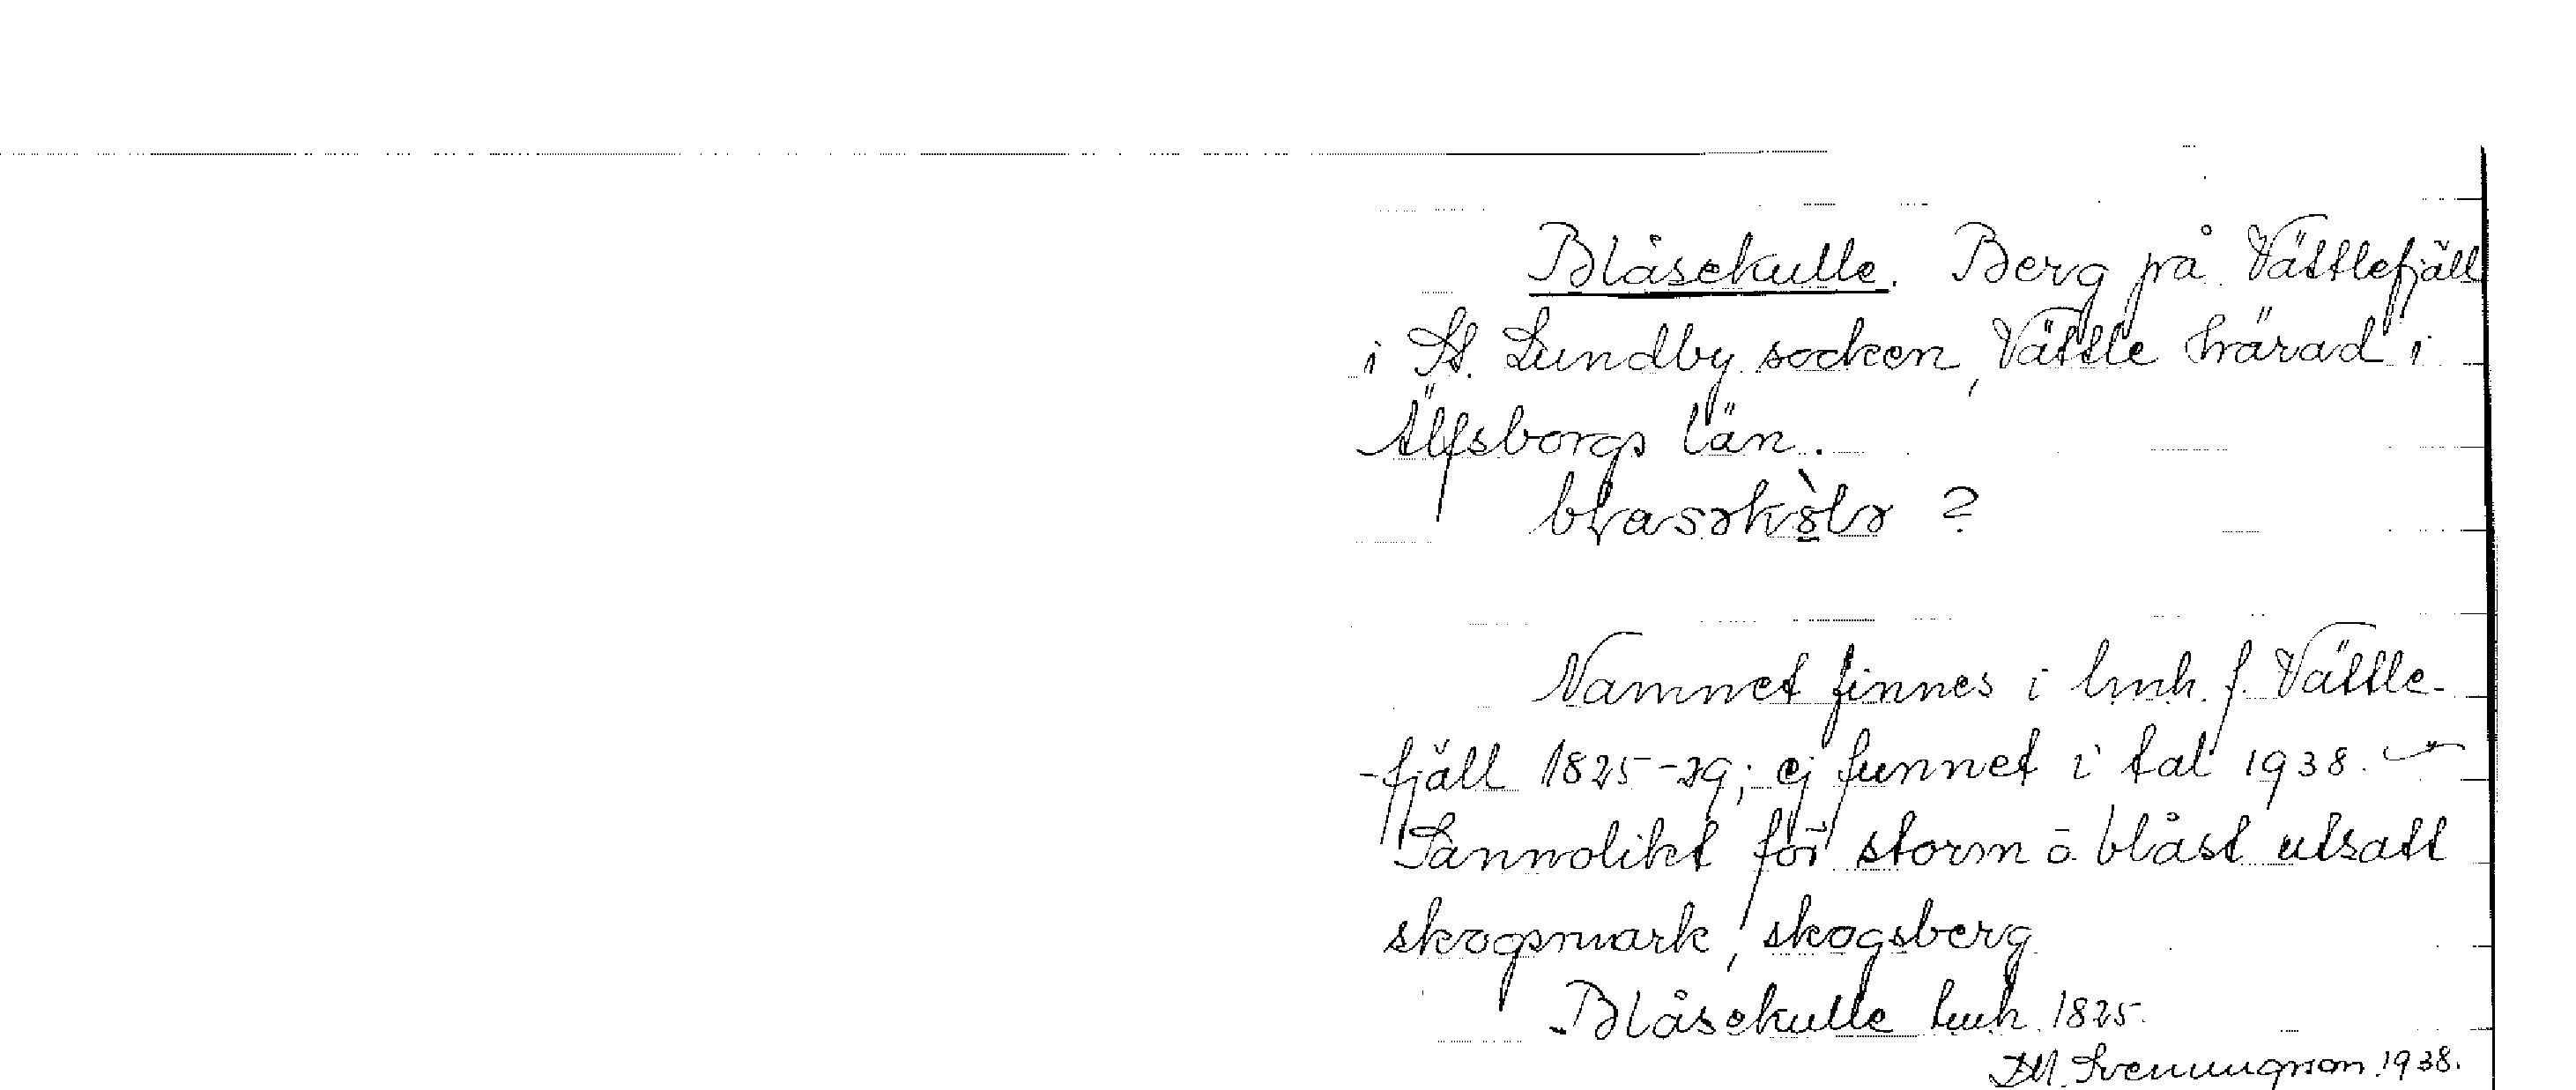 Blåsekulle. Berg på Vättlefjäll
i St. Lundby socken, Vättle härad i
Älfsborgs län.
?
Namnet finnes i lmh. f. Vättle-
-fjäll 1825-29; ej funnet i tal 1938. –
Sannolikt för storm o. blåst utsatt
skogsmark, skogsberg
Blåsekulle lmh. 1825.
Svenungson 1938.